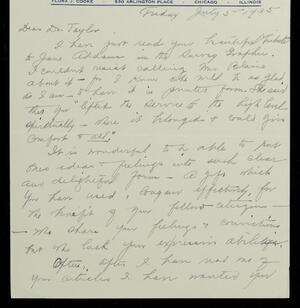 FLORA J. COOKE 530 ARLINGTON PLACE CHICAGO ILLINOIS
Friday July 5- 1935
Dear Dr. Taylor
I have just read your beautiful tribute
to Jane Addams in the Survey Graphic.
I couldn't resist calling Mrs Blaine
about it - for I knew she would be as glad
as I am - to have it in printed form. She said
this put the service to the high level
spiritually - where it belonged & could give
comfort to all."
It is wonderful to be able to put
one's ideas & feelings into such clear
and delightful form - a gift which
you have used, so effectively, for
the benefit of your fellow citizens -
- who share your feelings & convictions
but who lack your expression abilities.
Often, after I have read one of
your articles I have wanted you